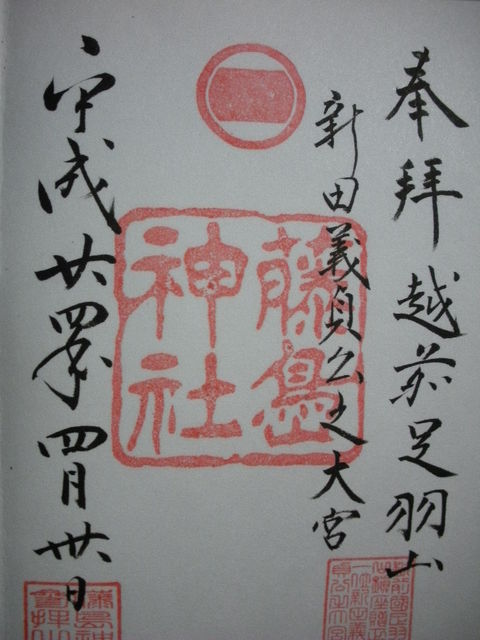 奉拝 越前足羽山
新田義貞公之大宮
藤島
神社
平成廿四年四月卅日